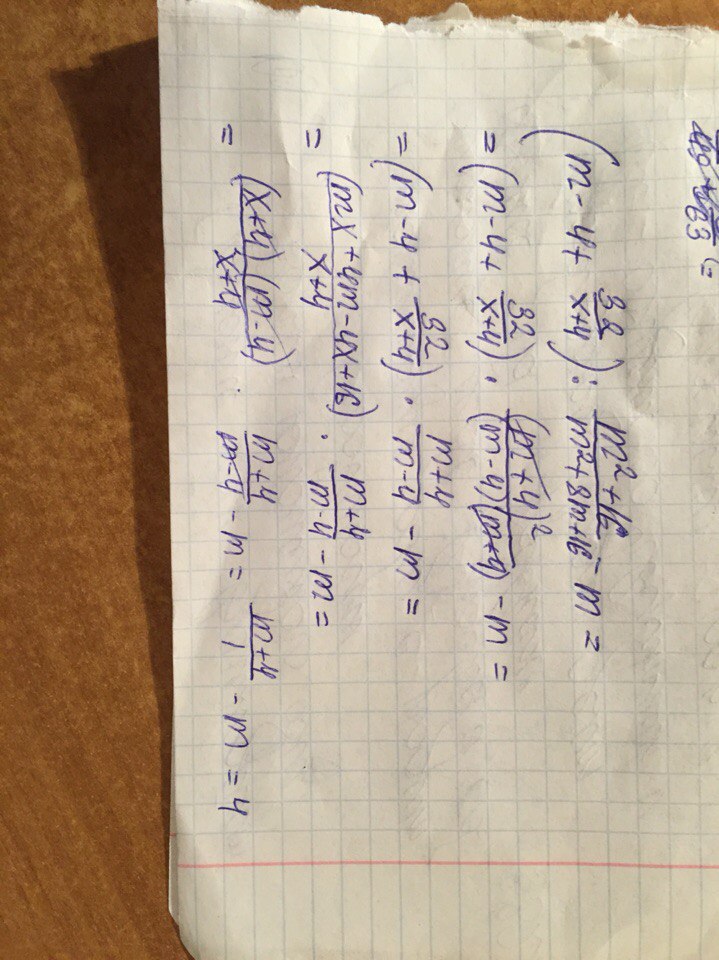 (m - 4 + 32/(x+4)) : (m²+16)/(m²+8m+16) - m =
= (m - 4 + 32/(x+4)) · (m+4)²/((m-4)(m+4)) - m =
= (m - 4 + 32/(x+4)) · (m+4)/(m-4) - m =
= (mx+4m-4x+16)/(x+4) · (m+4)/(m-4) - m =
= (x+4)(m-4)/(x+4) · (m+4)/(m-4) - m = (m+4)/1 - m = 4